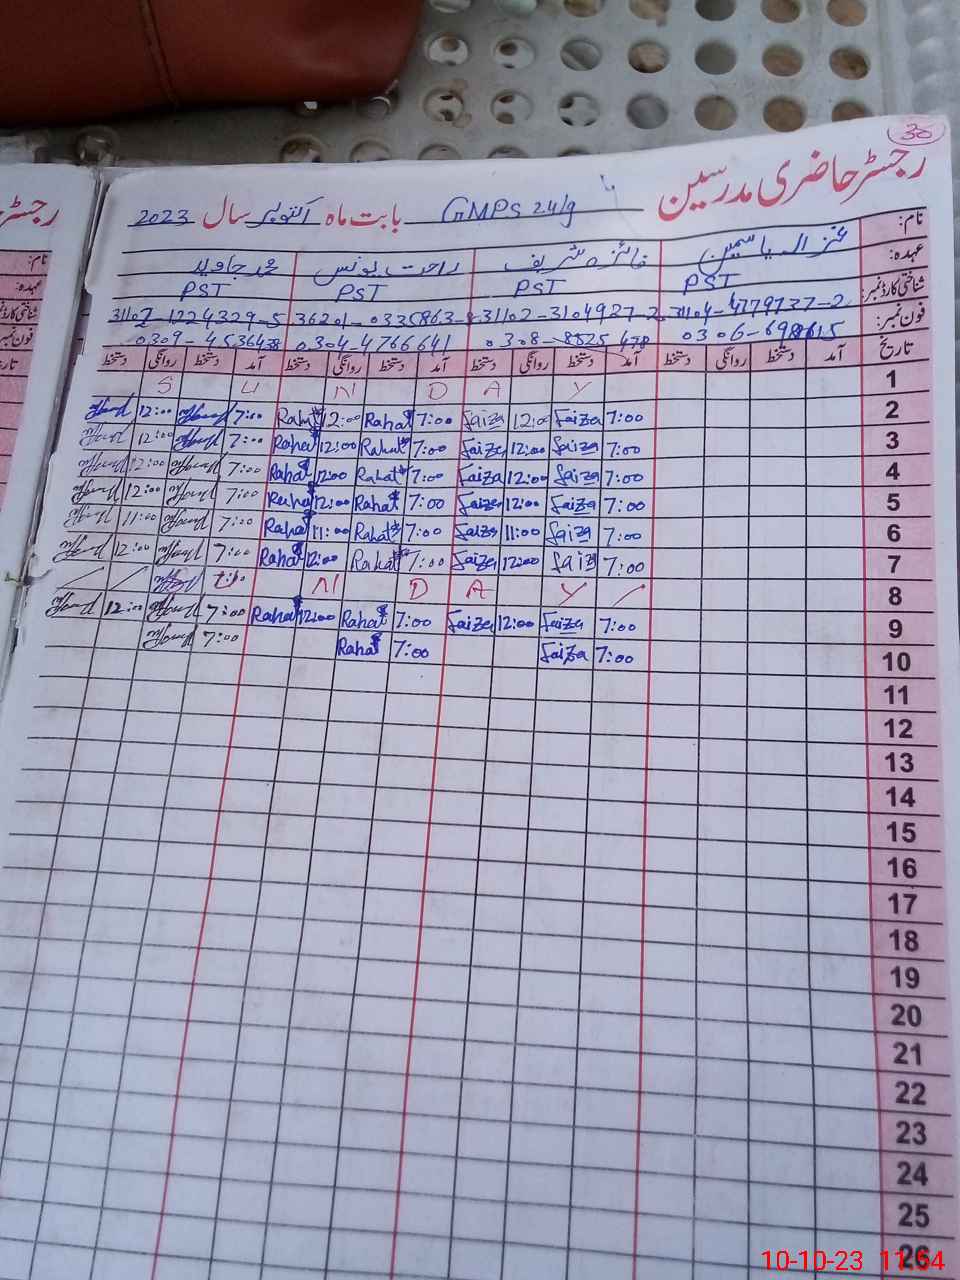 36
رجسٹر حاضری مدرسین GMPS 24/g بابت ماہ اکتوبر سال 2023
نام: غزالہ یاسمین فائزہ شریف راحت یونس محمد جاوید
عہدہ: PST PST PST PST
شناختی کارڈ نمبر: 31104-4779737-2 31102-3104927-2 36201-0335863- 31102-1224329-5
فون نمبر: 0306-6987615 0308-8825478 0304-4766641 0309-4536438
تاریخ آمد دستخط روانگی دستخط آمد دستخط روانگی دستخط آمد دستخط روانگی دستخط آمد دستخط روانگی دستخط
1 S U N D A Y
2 7:00 Faiza 12:00 Faiza 7:00 Rahat 12:00 Rahat 7:00 12:00
3 7:00 Faiza 12:00 Faiza 7:00 Rahat 12:00 Rahat 7:00 12:00
4 7:00 Faiza 12:00 Faiza 7:00 Rahat 12:00 Rahat 7:00 12:00
5 7:00 Faiza 12:00 Faiza 7:00 Rahat 12:00 Rahat 7:00 12:00
6 7:00 Faiza 11:00 Faiza 7:00 Rahat 11:00 Rahat 7:00 11:00
7 7:00 Faiza 12:00 Faiza 7:00 Rahat 12:00 Rahat 7:00 12:00
8 U N D A Y
9 7:00 Faiza 12:00 Faiza 7:00 Rahat 12:00 Rahat 7:00 12:00
10 7:00 Faiza 7:00 Rahat 7:00
11
12
13
14
15
16
17
18
19
20
21
22
23
24
25
26
10-10-23 11:54